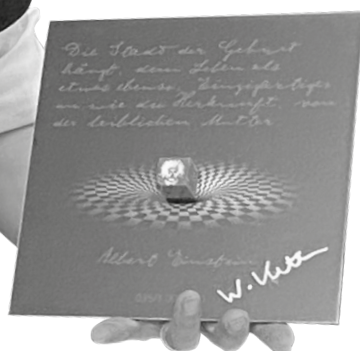 Die Stadt der Geburt
hängt dem Leben als
etwas ebenso Einzigartiges
an wie die Herkunft von
der leiblichen Mutter.
Albert Einstein
W.